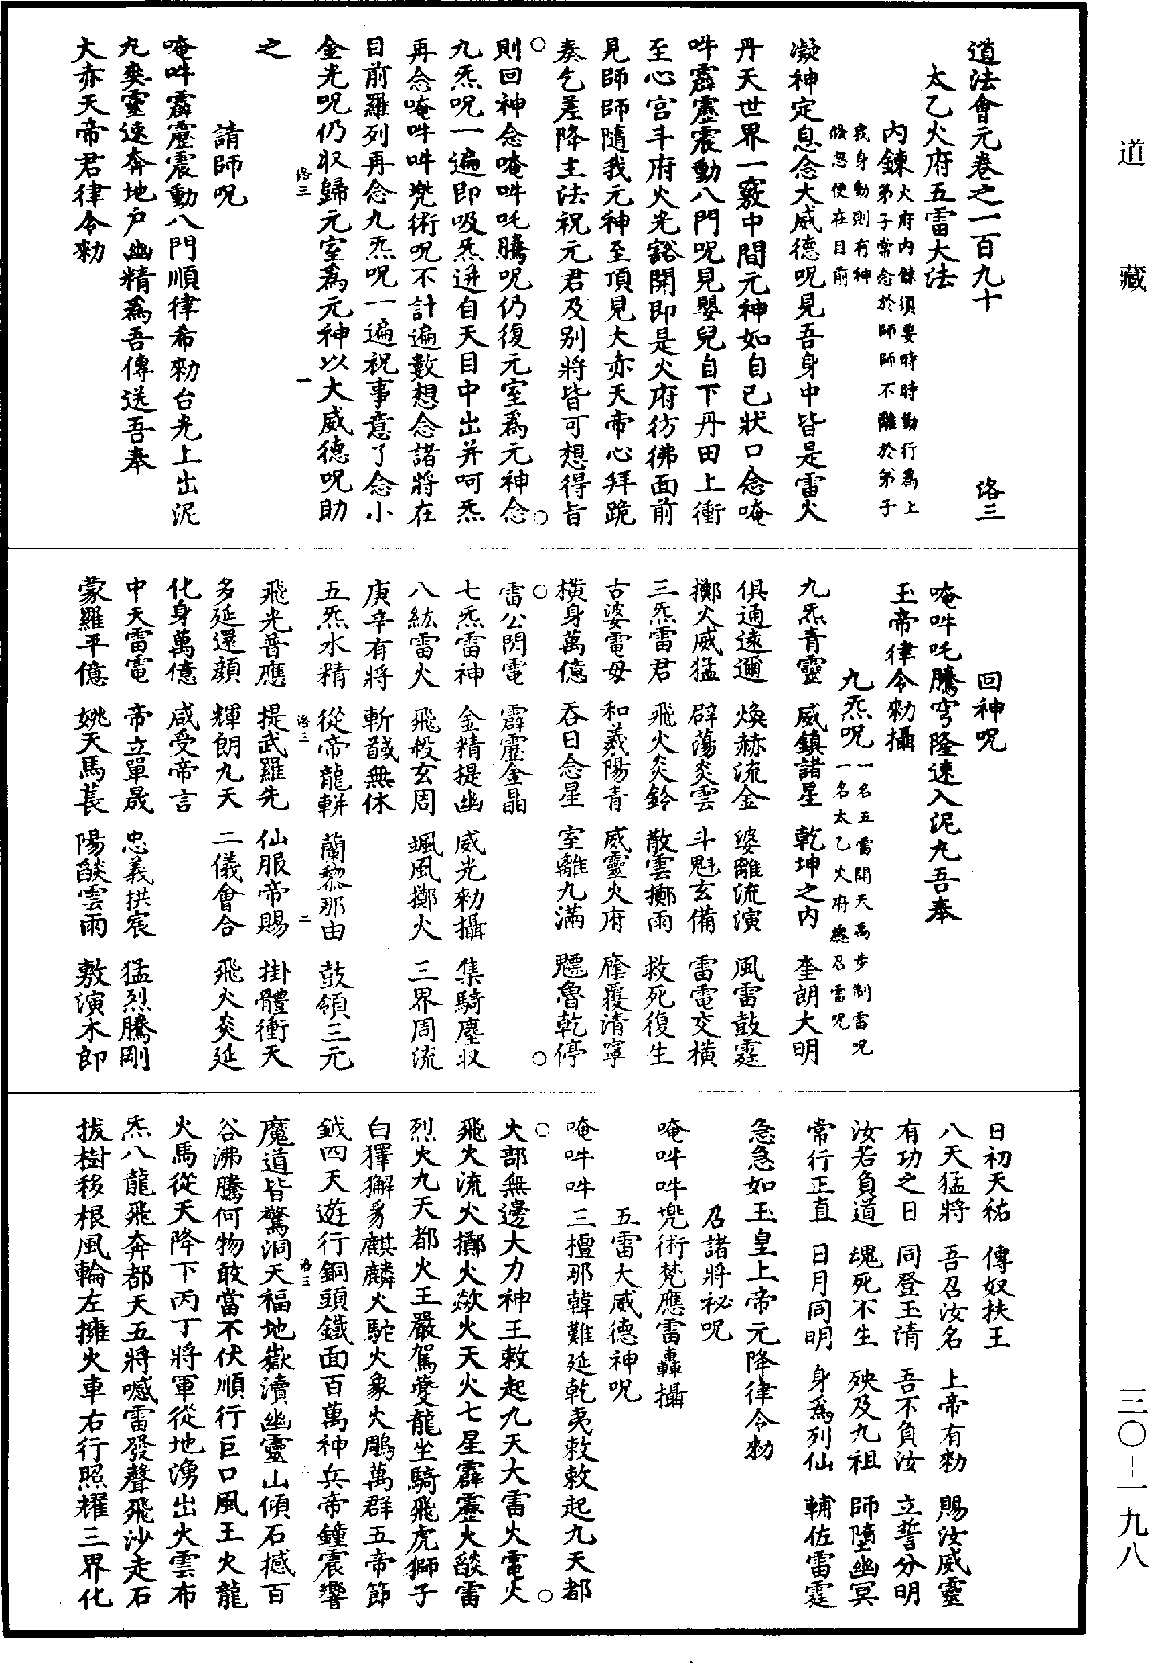 道藏
三〇-一九八
道法會元卷之一百九十 洛三
太乙火府五雷大法
內鍊
火府內鍊須要時時勤行為上
弟子常念於師師不離於弟子
我身動則有神
倏忽便在目前
凝神定息念大威德呪見吾身中皆是雷火
丹天世界一竅中間元神如自己狀口念唵
吽霹靂震動八門呪見嬰兒自下丹田上衝
至心宮斗府火光豁開即是火府彷彿面前
見師師隨我元神至頂見大赤天帝心拜跪
奏乞差降主法祝元君及別將皆可想得旨
則回神念唵吽吒騰呪仍復元室為元神念
九炁呪一遍即吸炁迸自天目中出并呵炁
再念唵吽吽兠術呪不計遍數想念諸將在
目前羅列再念九炁呪一遍祝事意了念小
金光呪仍収歸元室為元神以大威德呪助
洛三 一
之
請師呪
唵吽霹靂震動八門順律希勑台光上出泥
九奕靈速奔地戶幽精為吾傳送吾奉
大赤天帝君律令勑
回神呪
唵吽吒騰穹隆速入泥九吾奉
玉帝律令勑攝
九炁呪
一名五雷開天禹步制雷呪
一名太乙火府總召雷呪
九炁青靈 威鎮諸星 乾坤之內 奎朗大明
俱通遠邇 煥赫流金 婆離流演 風雷鼓霆
擲火威猛 辟蕩炎雲 斗魁玄備 雷電交橫
三炁雷君 飛火炎鈴 散雲擲雨 救死復生
古婆電母 和羲陽青 威靈火府 廕覆清寧
橫身萬億 吞日念星 室離九滿 魒魯乾停
雷公閃電 霹靂全晶
七炁雷神 金精提幽 威光勑攝 集騎塵収
八紘雷火 飛殺玄周 颯風擲火 三界周流
庚辛有將 斬馘無休
五炁水精 從帝龍軿 蘭黎那由 鼓領三元
洛三 二
飛光普應 提武羅先 仙服帝賜 掛體衝天
多延還顏 輝朗九天 二儀會合 飛火炎延
化身萬億 咸受帝言
中天雷電 帝立單晟 忠義拱宸 猛烈騰剛
蒙羅平億 姚天馬萇 陽燄雲雨 敷演木郎
日初天祐 傳奴扶王
八天猛將 吾召汝名 上帝有勑 賜汝威靈
有功之日 同登玉清 吾不負汝 立誓分明
汝若負道 魂死不生 殃及九祖 師墮幽冥
常行正直 日月同明 身為列仙 輔佐雷霆
急急如玉皇上帝元降律令勑
召諸將祕呪
唵吽吽兠術梵應雷轟攝
五雷大威德神呪
唵吽吽三檀那韓難延乾夷敕敕起九天都
火部無邊大力神王敕起九天大雷火電火
飛火流火擲火欻火天火七星霹靂火燄雷
烈火九天都火王嚴駕夔龍坐騎飛虎獅子
白獐獬豸麒麟火駝火象火鵰萬群五帝節
鉞四天遊行銅頭鐵面百萬神兵帝鐘震響
洛三
魔道皆驚洞天福地嶽瀆幽靈山傾石撼百
谷沸騰何物敢當不伏順行巨口風王火龍
火馬從天降下丙丁將軍從地湧出火雲布
炁八龍飛奔都天五將噉雷發聲飛沙走石
拔樹移根風輪左擁火車右行照耀三界化